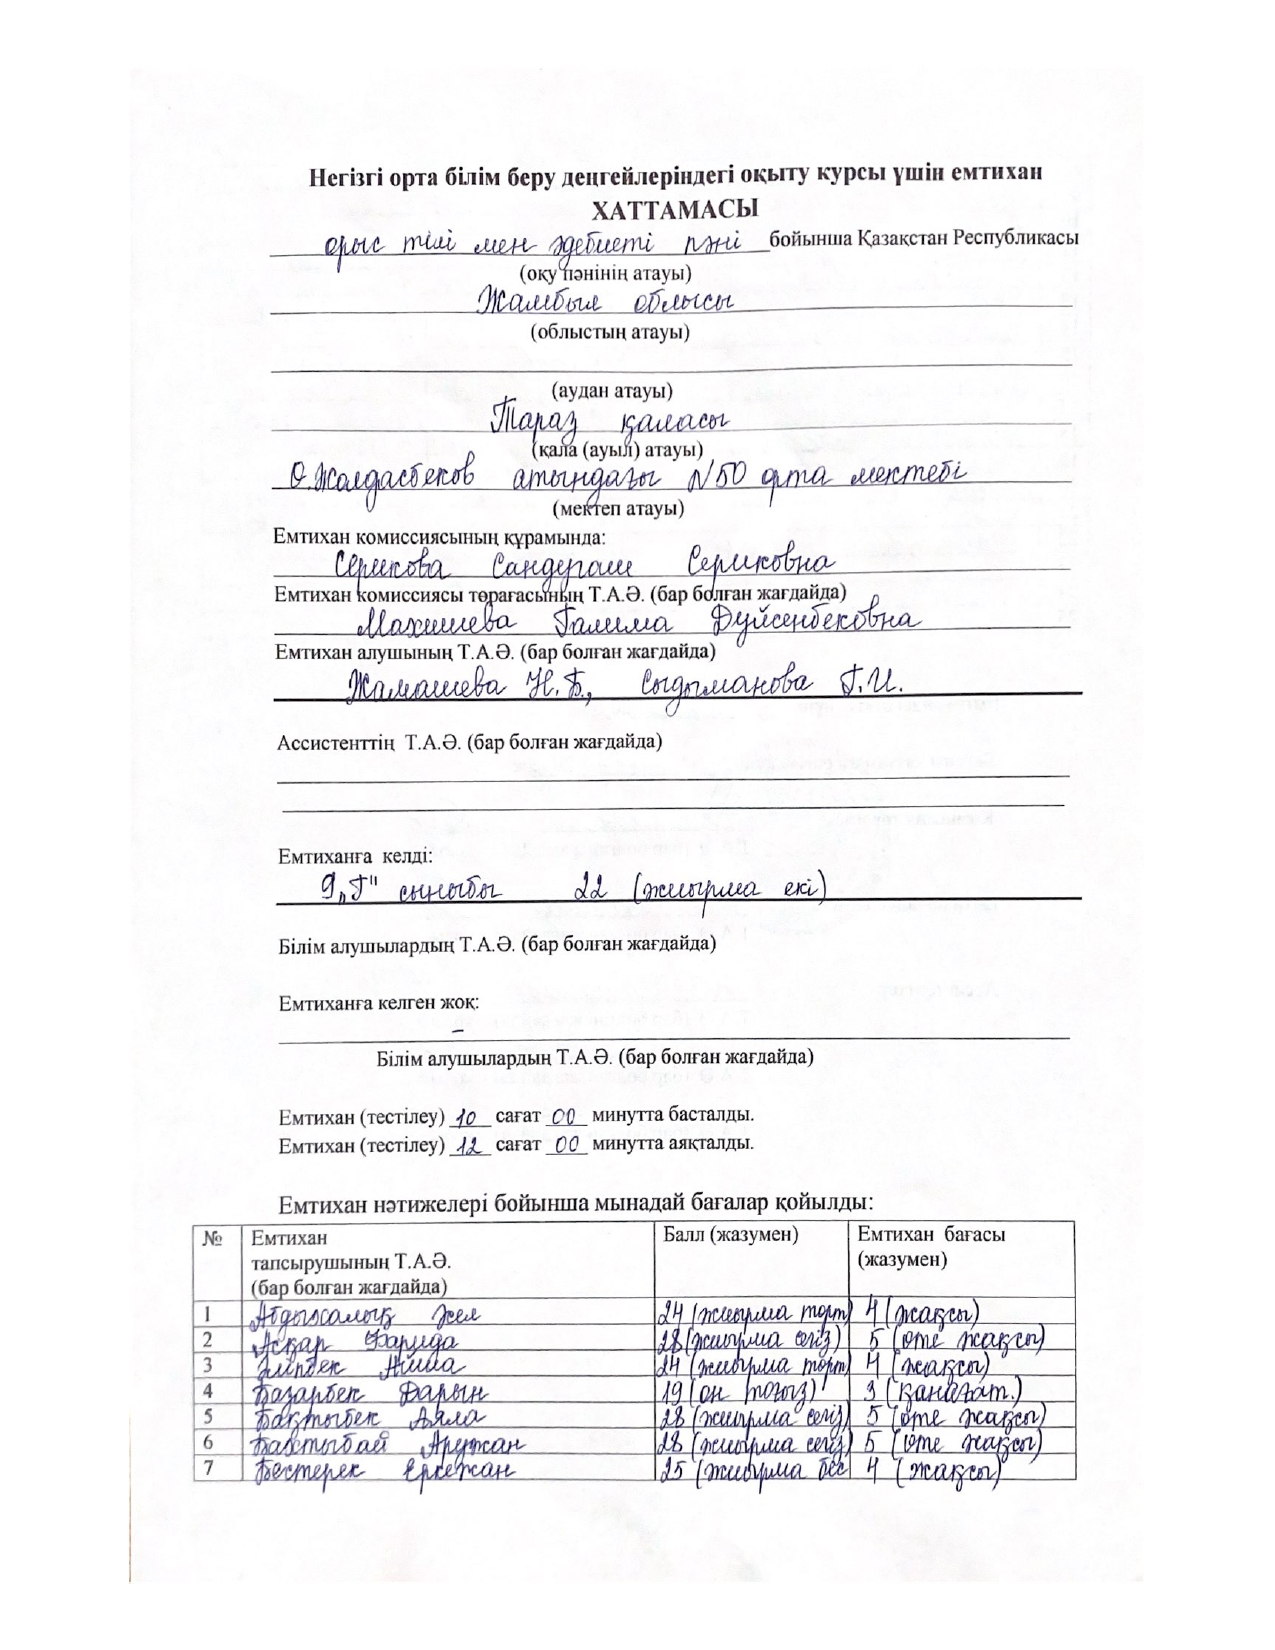 Негізгі орта білім беру деңгейлеріндегі оқыту курсы үшін емтихан
ХАТТАМАСЫ
орыс тілі мен әдебиеті пәні бойынша Қазақстан Республикасы
(оқу пәнінің атауы)
Жамбыл облысы
(облыстың атауы)
(аудан атауы)
Тараз қаласы
(қала (ауыл) атауы)
Ө.Жолдасбеков атындағы №50 орта мектебі
(мектеп атауы)
Емтихан комиссиясының құрамында:
Серикова Сандугаш Сериковна
Емтихан комиссиясы төрағасының Т.А.Ә. (бар болған жағдайда)
Махишева Галима Дуйсенбековна
Емтихан алушының Т.А.Ә. (бар болған жағдайда)
Жамашева Н.Б., Сыдыманова Г.И.
Ассистенттің Т.А.Ә. (бар болған жағдайда)
Емтиханға келді:
9 „Г" сыныбы 22 (жиырма екі)
Білім алушылардың Т.А.Ә. (бар болған жағдайда)
Емтиханға келген жоқ:
–
Білім алушылардың Т.А.Ә. (бар болған жағдайда)
Емтихан (тестілеу) 10 сағат 00 минутта басталды.
Емтихан (тестілеу) 12 сағат 00 минутта аяқталды.
Емтихан нәтижелері бойынша мынадай бағалар қойылды:
№ Емтихан Балл (жазумен) Емтихан бағасы
тапсырушының Т.А.Ә. (жазумен)
(бар болған жағдайда)
1 Абдыжалық 24 (жиырма төрт) 4 (жақсы)
2 Асқар Фарида 28 (жиырма сегіз) 5 (өте жақсы)
3 Әліпбек 24 (жиырма төрт) 4 (жақсы)
4 Базарбек Дарын 19 (он тоғыз) 3 (қанағат.)
5 Бақтыбек Аяла 28 (жиырма сегіз) 5 (өте жақсы)
6 Бахтыбай Аружан 28 (жиырма сегіз) 5 (өте жақсы)
7 Бестерек Еркежан 25 (жиырма бес 4 (жақсы)